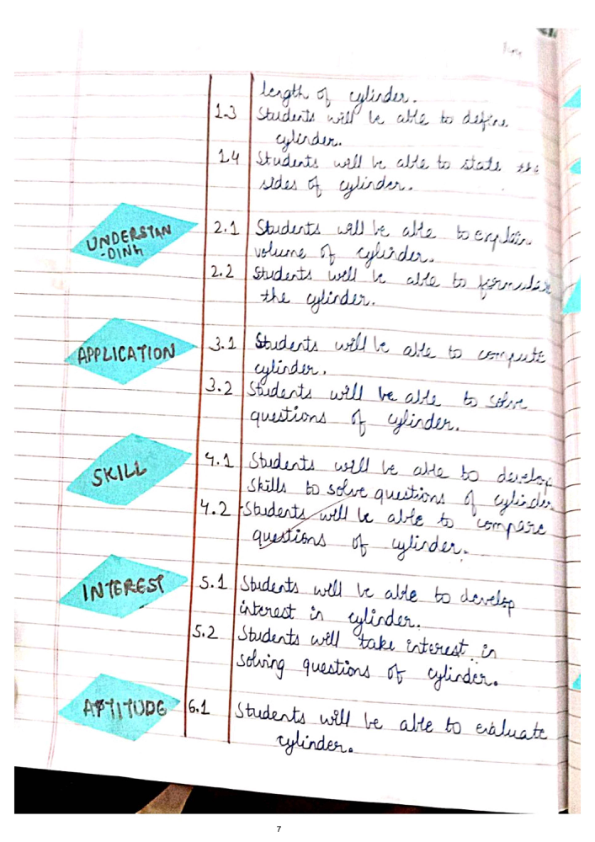 length of cylinder.
1.3 Students will be able to define
cylinder.
1.4 Students will be able to state the
sides of cylinder.
UNDERSTAN
-DING
2.1 Students will be able to explain
volume of cylinder.
2.2 Students will be able to formulate
the cylinder.
APPLICATION
3.1 Students will be able to compute
cylinder.
3.2 Students will be able to solve
questions of cylinder.
SKILL
4.1 Students will be able to develop
skills to solve questions of cylinder
4.2 Students will be able to compare
questions of cylinder.
INTEREST
5.1 Students will be able to develop
interest in cylinder.
5.2 Students will take interest in
solving questions of cylinder.
APTITUDE
6.1 Students will be able to evaluate
cylinder.
7